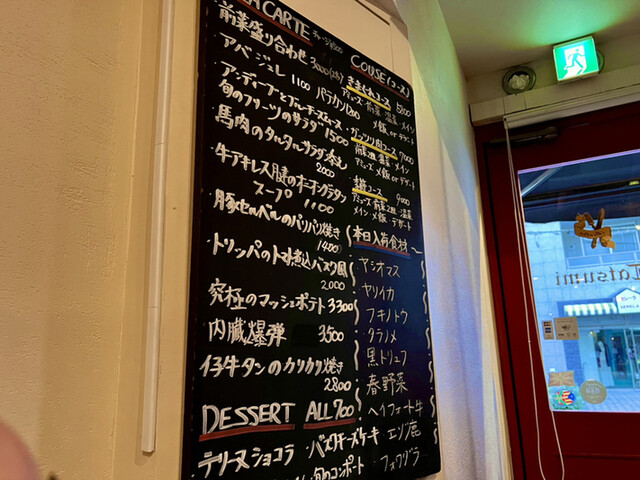 A CARTE チャージ500
前菜盛り合わせ 3000(2名)
アペジュレ 1100 パラカン1200
アンディーブとブルーチーズムース
旬のフルーツのサラダ 1500
馬肉のタルタルサラダ添え
2000
牛アキレス腱のオニオングラタン
スープ 1100
豚セルベルのパリパリ焼き
1400
トリッパのトマト煮込バスク風
2000
究極のマッシュポテト 3300
内臓爆弾 3500
仔牛タンのカリカリ焼き
2800
DESSERT ALL 700
テリーヌショコラ バスクチーズケーキ
旬のコンポート
COUSE(コース)
きまぐれコース 5000
アミューズ 前菜 温菜 メイン
〆飯 or デザート
ガッツリ肉コース 7000
前菜 温菜 メイン
アミューズ 〆飯 or デザート
コース 9000
アミューズ 前菜2皿 温菜
メイン 〆飯 デザート
本日入荷食材
ヤシオマス
ヤリイカ
フキノトウ
タラノメ
黒トリュフ
春野菜
ヘイフォート牛
エゾ鹿
フォワグラ
Tatsumi